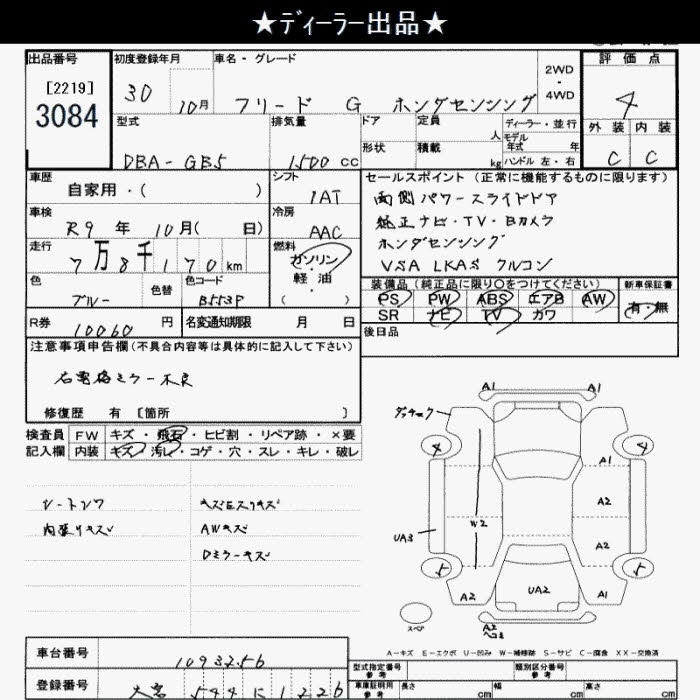 ★ディーラー出品★
出品番号 初度登録年月 車名・グレード 2WD・4WD 評価点
[2219]
3084
30 10月 フリード G ホンダセンシング 4
型式 排気量 ドア 定員 人 ディーラー・並行 外装 内装
モデル年式 年
DBA-GB5 1500cc 形状 積載 kg ハンドル 左・右 C C
車歴 自家用・( ) シフト 1AT
セールスポイント(正常に機能するものに限ります)
両側パワースライドドア
車検 R9年 10月( 日) 冷房 AAC
純正ナビ・TV・Bカメラ
ホンダセンシング
走行 7万8千170km 燃料 ガソリン・軽油 ( )
VSA LKAS クルコン
色 ブルー 色替 色コード B553P
装備品(純正品に限り○をつけてください) 新車保証書
PS PW ABS エアB AW 有・無
SR ナビ TV カワ
R券 10060円 名変通知期限 月 日
後日品
注意事項申告欄(不具合内容等は具体的に記入して下さい)
右電格ミラー不良
修復歴 有 [箇所 ]
検査員記入欄 FW キズ・飛石・ヒビ割・リペア跡・×要
内装 キズ・汚レ・コゲ・穴・スレ・キレ・破レ
シートシワ
内張りキズ
AWキズ
Dミラーキズ
A1 A1
4 4
A1
A2
W2
UA3
A2
5 5
A2 UA2 A1
スペア
A2
ヘコミ
A-キズ E-エクボ U-凹み W-補修跡 S-サビ C-腐食 XX-交換済
車台番号 1093256
型式指定番号 参考 類別区分番号 参考
登録番号 大宮 544 に 1226
車庫証明用 参考 長さ cm 幅 cm 高さ cm